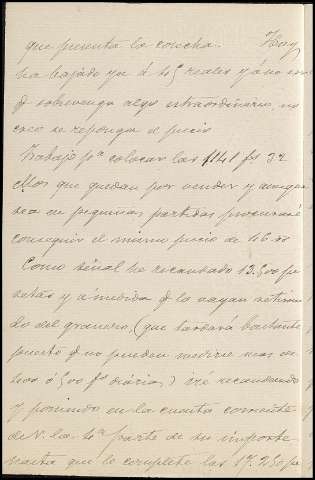 que presenta la cosecha. Hoy
ha bajado ya á 45 reales y á no
q sobrevenga algo extraordinario, no
creo se reponga el precio
Trabajo pª colocar las 1141 fs 32
que quedan por vender y aunque
sea en pequeñas partidas procuraré
conseguir el mismo precio de 46
Como señal he recaudado 13.500 pe
setas y á medida q lo vayan retiran
do del granero, (que tardará bastante
puesto q no pueden medirse mas
ó 500 fs diarias) iré recaudando
y poniendo en la cuenta corriente
de V. la 4ª parte de su importe
hasta que le complete las 17.250 pe